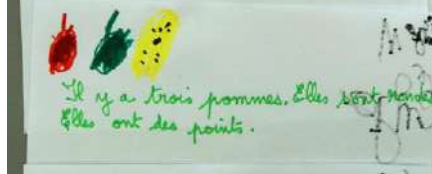 Il y a trois pommes. Elles sont rondes
Elles ont des points.